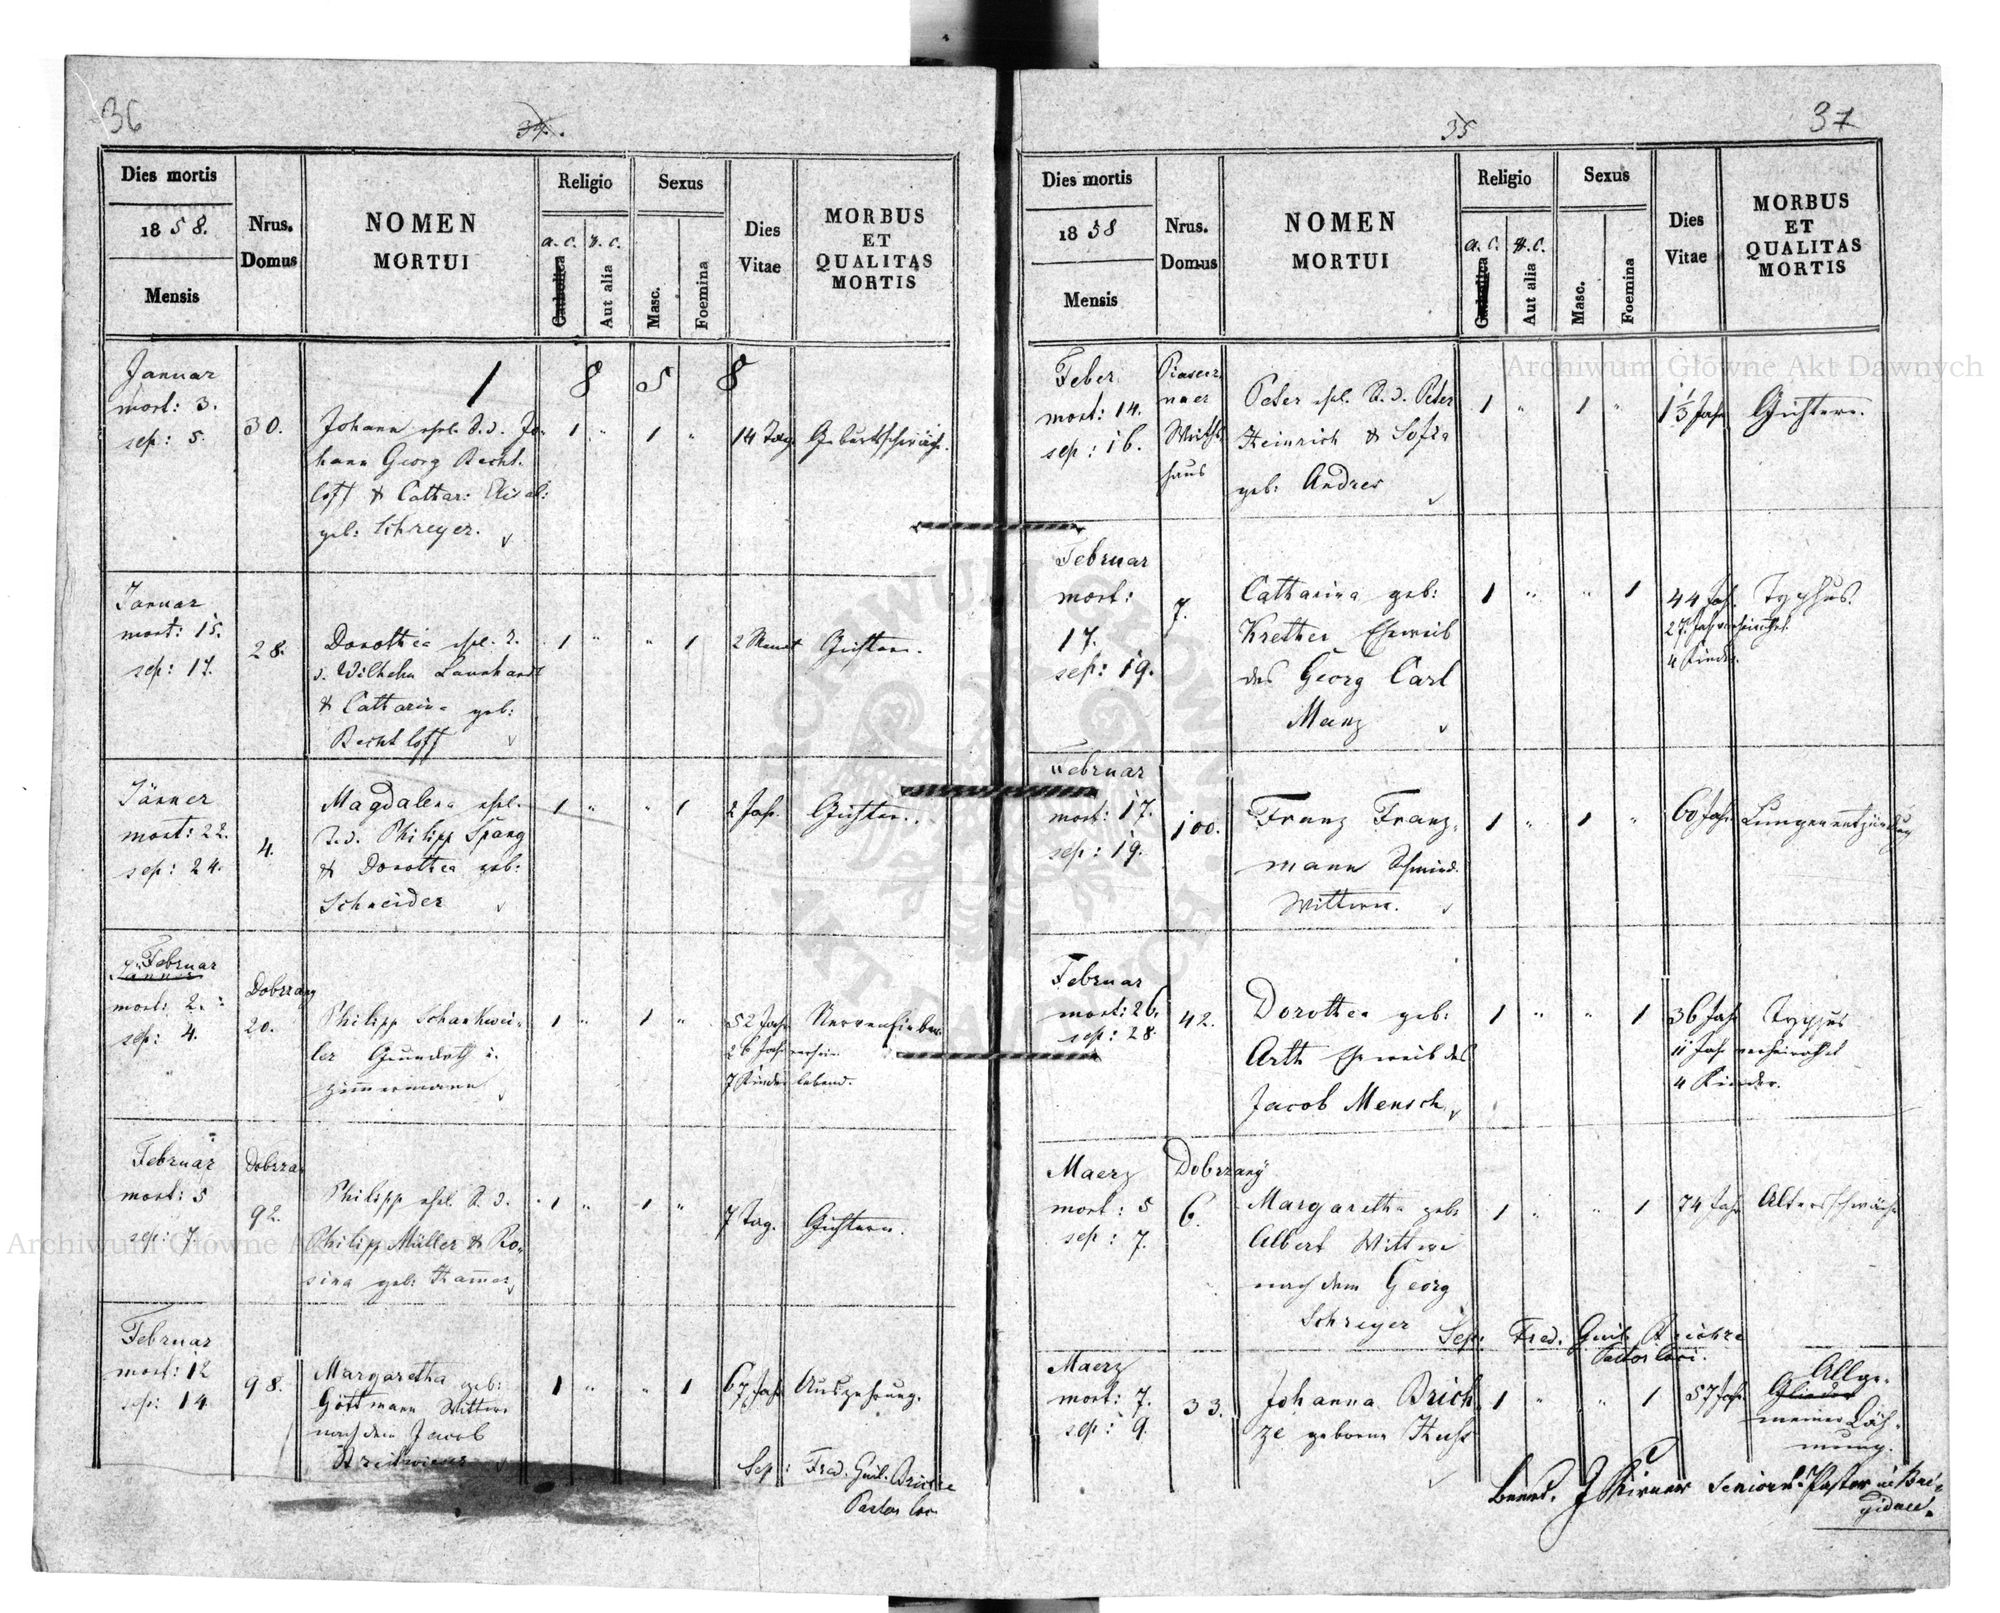 36
34.
Dies mortis
1858.
Mensis
Nrus.
Domus
NOMEN
MORTUI
Religio
a. c. h. c.
Catholica
Aut alia
Sexus
Masc.
Foemina
Dies
Vitae
MORBUS
ET
QUALITAS
MORTIS
1 8 5 8
Januar
mort: 3.
sep: 5.
30.
Johann ehel. S. d. Jo-
hann Georg Becht-
loff & Cathar: Elisab:
geb: Schreyer.
1 " 1 "
14 Tag
Geburtsschwäche.
Januar
mort: 15.
sep: 17.
28.
Dorothea ehel. T.
d. Wilhelm Launhardt
& Catharina geb:
Bechtloff
1 " " 1
2 Monat
Gichtern.
Jänner
mort: 22.
sep: 24.
4.
Magdalena ehel.
T. d. Philipp Spang
& Dorothea geb:
Schneider
1 " " 1
2 Jahr.
Gichtern.
Februar
Jänner
mort: 2.
sep: 4.
Dobrzany
20.
Philipp Schankwei-
ler Grundwth u.
Zimmermann
1 " 1 "
52 Jahr
26 Jahr verheir.
7 Kinder lebend.
Nervenfieber.
Februar
mort: 5
sep: 7.
Dobrza
92.
Philipp ehel. S. d.
Philipp Müller & Ro-
sina geb: Kam̅er
1 " 1 "
7 Tag.
Gichtern.
Februar
mort: 12
sep: 14.
98.
Margaretha geb:
Göttmann Wittwe
nach dem Jacob
1 " " 1
67 Jahr
Auszehrung.
Sep: Fred. Guil.
Pastor loci
37
35
Dies mortis
1858
Mensis
Nrus.
Domus
NOMEN
MORTUI
Religio
a. c. h. c.
Catholica
Aut alia
Sexus
Masc.
Foemina
Dies
Vitae
MORBUS
ET
QUALITAS
MORTIS
Feber
mort: 14.
sep: 16.
Wirths-
haus
Peter ehel. S. d. Peter
Heinrich & Sofia
geb: Andres
1 " 1 "
1 1/3 Jahr
Gichtern.
Februar
mort:
17.
sep: 19.
7.
Catharina geb:
Krether Eheweib
des Georg Carl
Manz
1 " " 1
44 Jah.
27 Jahr verheirathet
4 Kinder.
Typhus.
Februar
mort: 17.
sep: 19.
100.
Franz Franz-
mann Schmied.
Wittwer.
1 " 1 "
60 Jahr
Lungenentzündung
Februar
mort: 26.
sep: 28
42.
Dorothea geb:
Arth Eheweib des
Jacob Mensch
1 " " 1
36 Jahr
11 Jahr verheirathet
4 Kinder.
Typhus
Maerz
mort: 5
sep: 7.
Dobrzany
6.
Margaretha geb:
Albert Wittwe
nach dem Georg
Schreyer
1 " " 1
74 Jahr
Altersschwäche
Sep: Fred. Guil.
Pastor loci.
Maerz
mort: 7.
sep: 9.
33.
Johanna Brich-
ze geborne Kuhs
1 " " 1
57 Jahr.
Allge-
Glieder
meiner Läh-
mung.
Senior u. Pastor in Bri-
gidau.
Archiwum Główne Akt Dawnych
Archiwum Główne Akt Dawnych